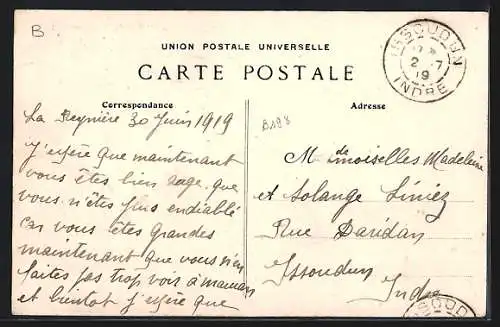 B
UNION POSTALE UNIVERSELLE
CARTE POSTALE
ISSOUDUN
2 7
19
INDRE
Correspondance
La 30 Juin 1919
J'espère que maintenant
vous êtes bien sage, que
vous n'êtes plus endiablé
car vous êtes grandes
maintenant que vous n'en
faites pas trop voir à maman
et bientôt j'espère que
Adresse
B198
Mesdemoiselles Madeleine
et Solange Liniez
Rue Daridan
Issoudun
Indre